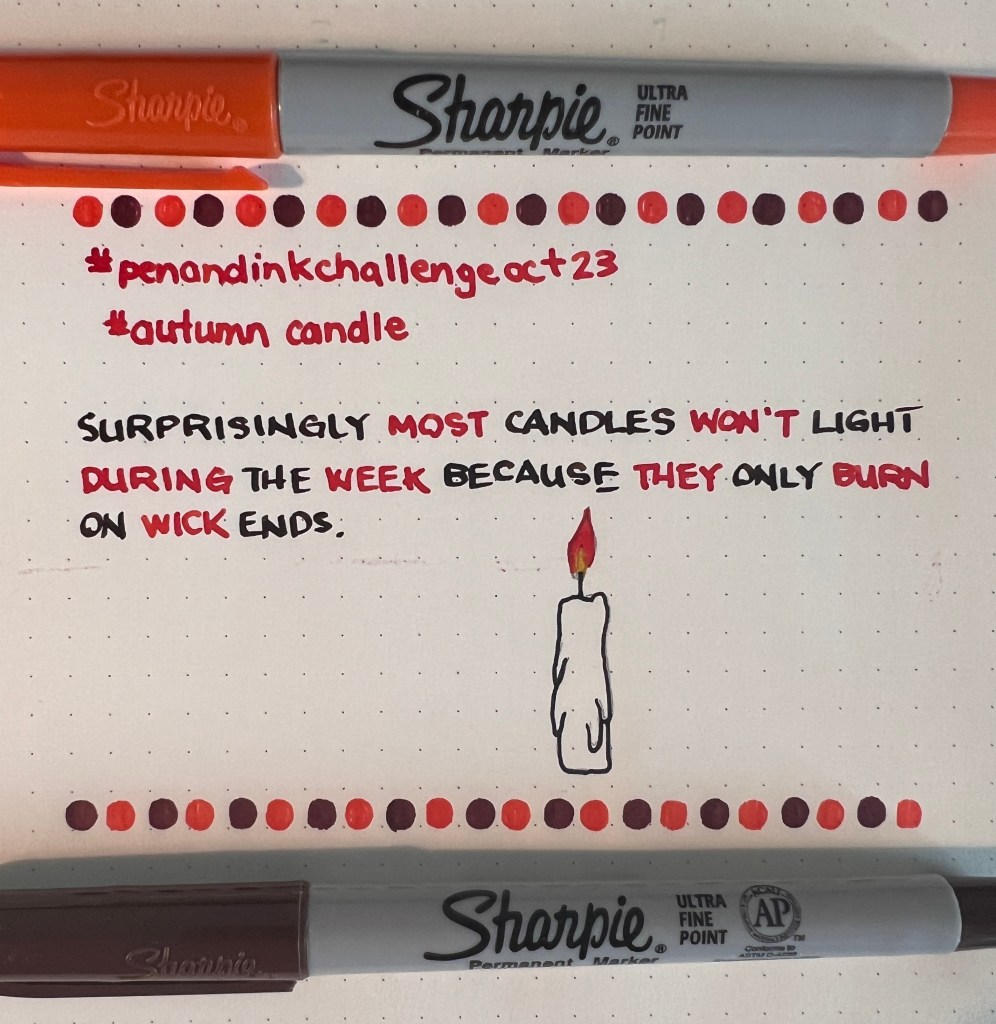 Sharpie®
Sharpie® ULTRA
FINE
POINT
Permanent Marker
#penandinkchallengeoct23
#autumn candle
SURPRISINGLY MOST CANDLES WON'T LIGHT
DURING THE WEEK BECAUSE THEY ONLY BURN
ON WICK ENDS.
Sharpie
Sharpie® ULTRA
FINE
POINT
Permanent Marker
AP
TM
Conforms to